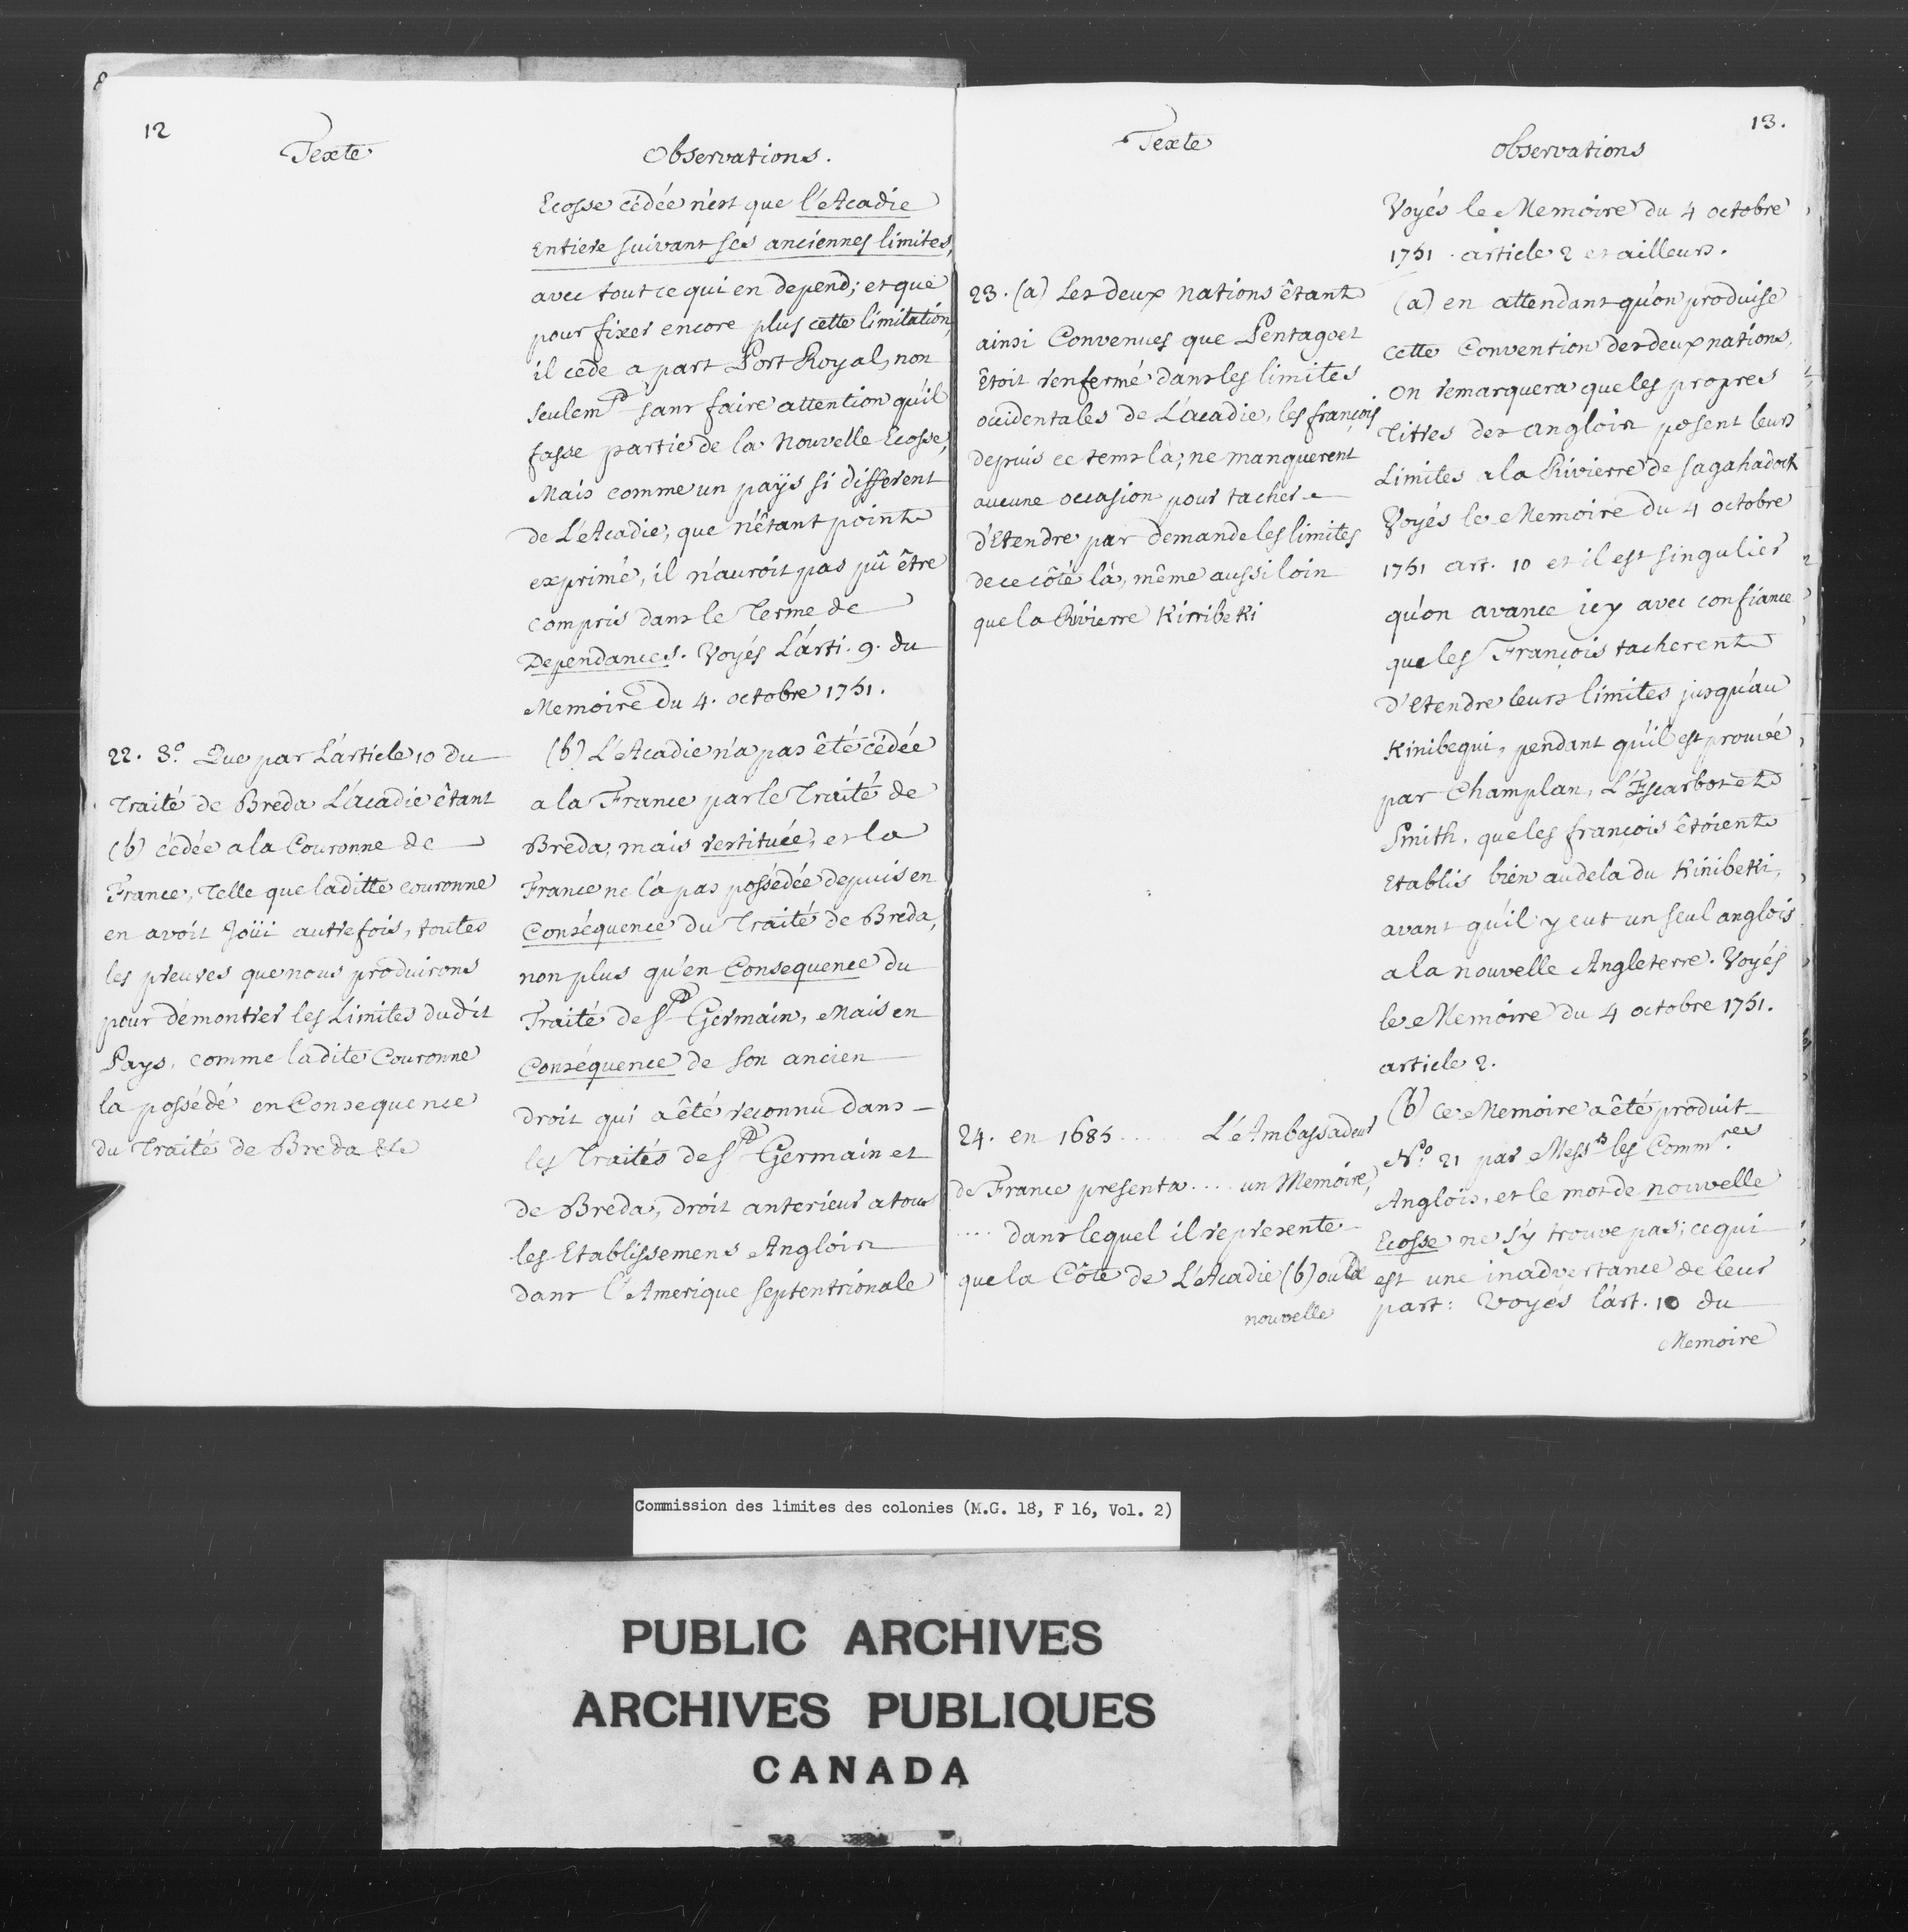 12
Texte
Observations.
Ecosse cédée n'est que l'Acadie
Entiere suivant ses anciennes limites,
avec tout ce qui en depend; et que
pour fixer encore plus cette limitation,
il cede a part Port Royal, non
seulemt sans faire attention qu'il
fasse partie de la Nouvelle Ecosse,
Mais comme un païs si different
de L'Acadie, que n'êtant point
exprimé, il n'auroit pas pû être
compris dans le Terme de
Dependances. Voyés L'arti. 9. du
Memoire du 4. octobre 1751.
22. 3.º Que par L'article 10 du
Traité de Breda L'acadie êtant
(b) cédée a la Couronne de
France, Telle que laditte couronne
en avoit Joüi autrefois, toutes
les preuves que nous produirons
pour démontrer les Limites dudit
Pays, comme ladite Couronne
la possédé en Consequence
du Traité de Breda &c
(b) L'Acadie n'a pas êté cédée
a la France par le Traité de
Breda, mais restituée, et la
France ne l'a pas possédée depuis en
Conséquence du Traité de Breda,
non plus qu'en Consequence du
Traité de St Germain, Mais en
Conséquence de son ancien
droit qui a êté reconnu dans
les Traités de St Germain et
de Breda, droit anterieur a tous
les Etablissemens Anglois
dans l'Amerique septentrionale
13.
Texte
observations
Voyés le Memoire du 4 octobre
1751. article 2 et ailleurs.
23. (a) Les deux nations êtant
ainsi Convenues que Pentagoet
êtoit renfermé dans les limites
occidentales de L'acadie, les françois
depuis ce tems là; ne manquerent
aucune occasion pour tacher
d'Etendre par demande les limites
de ce côté là, même aussi loin
que la Rivierre Kinibeki
(a) en attendant qu'on produise
cette Convention des deux nations,
on remarquera que les propres
Titres des anglois posent leurs
Limites a la Rivierre de Sagahadock
Voyés le Memoire du 4 octobre
1751 art. 10 et il est singulier
qu'on avance icy avec confiance
que les François tacherent
d'Etendre leurs limites jusqu'au
Kinibequi, pendant qu'il est prouvé
par Champlan, L'Escarbot et
Smith, que les françois êtoient
Etablis bien au dela du Kinibeki,
avant qu'il y eut un seul anglois
a la nouvelle Angleterre. Voyés
le Memoire du 4 octobre 1751.
article 2.
24. en 1685 ..... L'Ambassadeur
de France presenta .... un Memoire,
.... dans lequel il represente
que la Côte de L'Acadie (b) ou la
nouvelle
(b) Ce Memoire a êté produit
N.º 21 par Messrs les Commres
Anglois, et le mot de nouvelle
Ecosse ne s'y trouve pas; ce qui
est une inadvertance de leur
part: Voyés l'art. 10 du
Memoire
Commission des limites des colonies (M.G. 18, F 16, Vol. 2)
PUBLIC ARCHIVES
ARCHIVES PUBLIQUES
CANADA